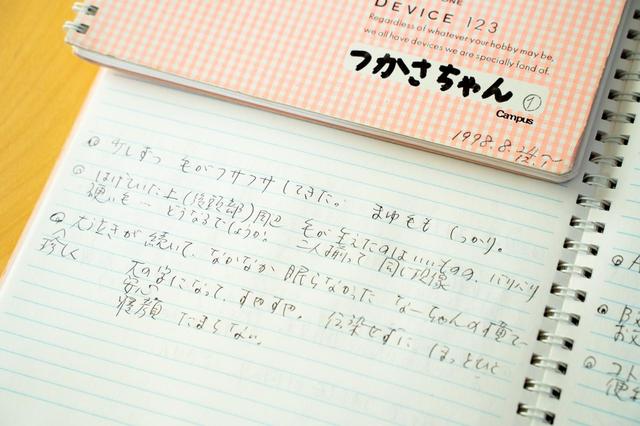 ONE
DEVICE 123
Regardless of whatever your hobby may be,
we all have devices we are specially fond of.
つかさちゃん ①
Campus
1998.8.24〜
12.
少しずつ 毛がフサフサしてきた。 まゆ毛も しっかり。
はげていた上(後頭部)周辺 毛が生えたのはいいものの、バリバリ
硬い毛… どうなるでしょうか! 二人揃って 同じ現像
大泣きが 続いて、なかなか 眠らなかった なーちゃんの横で
珍しく 大の字になって、すやすや。 伝染せずに ほっとひと
安心
寝顔 たまらない。
コト
便